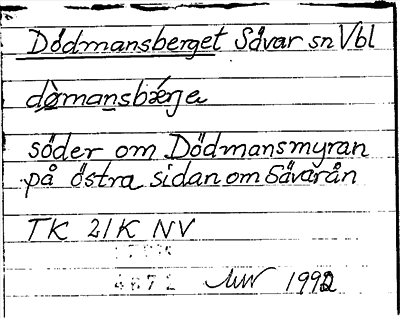 Dödmansberget Sävar sn Vbl
dò̱mansbǽrje
söder om Dödmansmyran
på östra sidan om Sävarån
TK 21K NV
4672 MW 1992